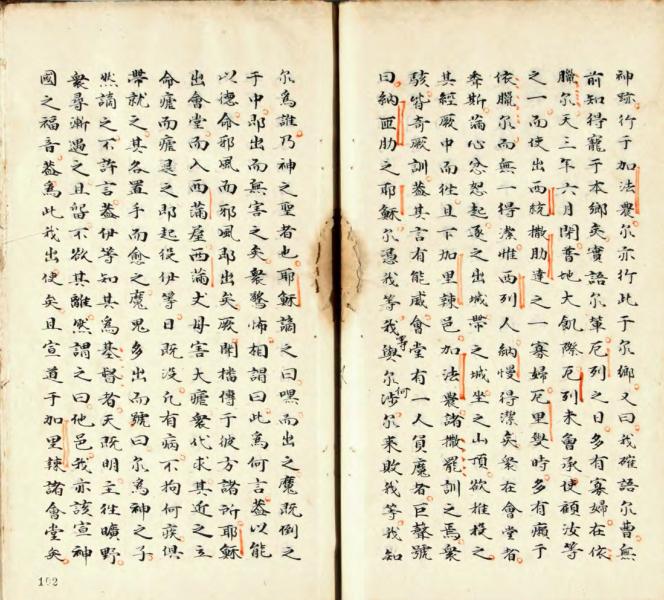 神跡行于加法農尔亦行此于尔鄉又曰我確語尔曹無
前知得寵于本鄉矣實語尔輩厄列之日多有寡婦在依
臘尔天三年六月閉普地大飢際厄列未曾承使顧汝等
之一而使出西統撒肋達之一寡婦厄里叟時多有癩于
依臘尔而無一得潔惟西列人納慢得潔矣衆在會堂者
斯滿心忿怒起逐之出城帶之城坐之山頂欲推投之
其經厥中而徃且下加里辣邑加法農諸撒罷訓之焉衆
駭奇厥訓蓋其言有能威會堂有一人負魔者巨聲號
曰納匝肋之耶穌尔憑我等我等與尔何涉尔来敗我等我知
尔為誰乃神之聖者也耶穌謫之曰嘿而出之魔既倒之
于中即出而無害之矣衆驚怖相謂曰此為何言蓋以能
以德命邪風而邪風即出矣厥聞播傳于彼方諸所耶穌
出會堂而入西滿屋西滿丈母害大瘧衆代求其近之立
命瘧而瘧退之即起役伊等日既沒凡有病不拘何疾俱
帶就之其各置手而愈之魔鬼多出而號曰尔為神之子
然謫之不許言蓋伊等知其為基督者天既明主徃曠野
衆尋漸遇之且留不欲其離然謂之曰他邑我亦該宣神
國之福音蓋為此我出使矣且宣道于加里辣諸會堂矣
102